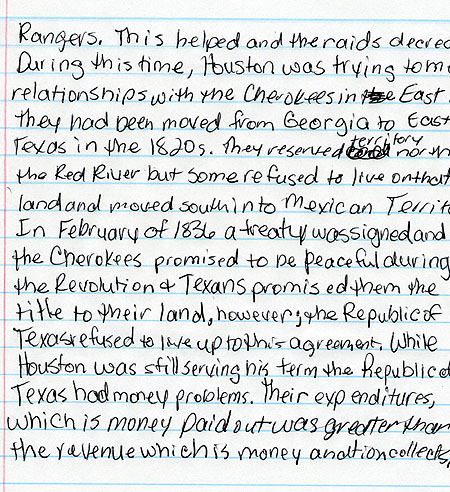 Rangers. This helped and the raids decrea
During this time, Houston was trying to m
relationships with the Cherokees in the East
They had been moved from Georgia to East
Texas in the 1820s. They reserved territory north
the Red River but some refused to live on that
land and moved south into Mexican Territ
In February of 1836 a treaty was signed and
the Cherokees promised to be peaceful during
the Revolution & Texans promised them the
title to their land, however, the Republic of
Texas refused to live up to this agreement. While
Houston was still serving his term the Republic of
Texas had money problems. Their expenditures,
which is money paid out was greater than
the revenue which is money a nation collects,